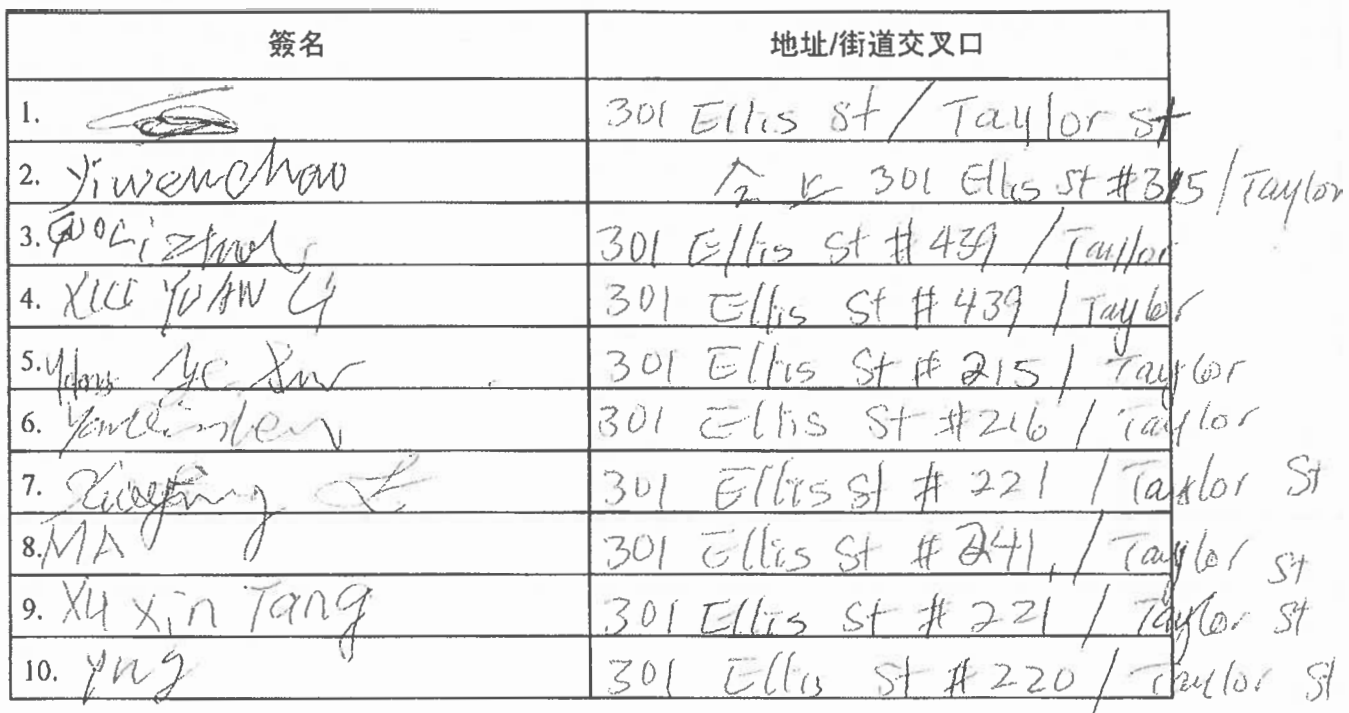 簽名 地址/街道交叉口
1. 301 Ellis St / Taylor St
2. Yiwenchao 301 Ellis St #315 / Taylor
3. 301 Ellis St # 439 / Taylor
4. XIU YUAN LI 301 Ellis St # 439 / Taylor
5. 301 Ellis St # 215 / Taylor
6. 301 Ellis St # 216 / Taylor
7. 301 Ellis St # 221 / Taylor St
8. MA 301 Ellis St # 241 / Taylor St
9. Xu Xin Tang 301 Ellis St # 221 / Taylor St
10. 301 Ellis St # 220 / Taylor St